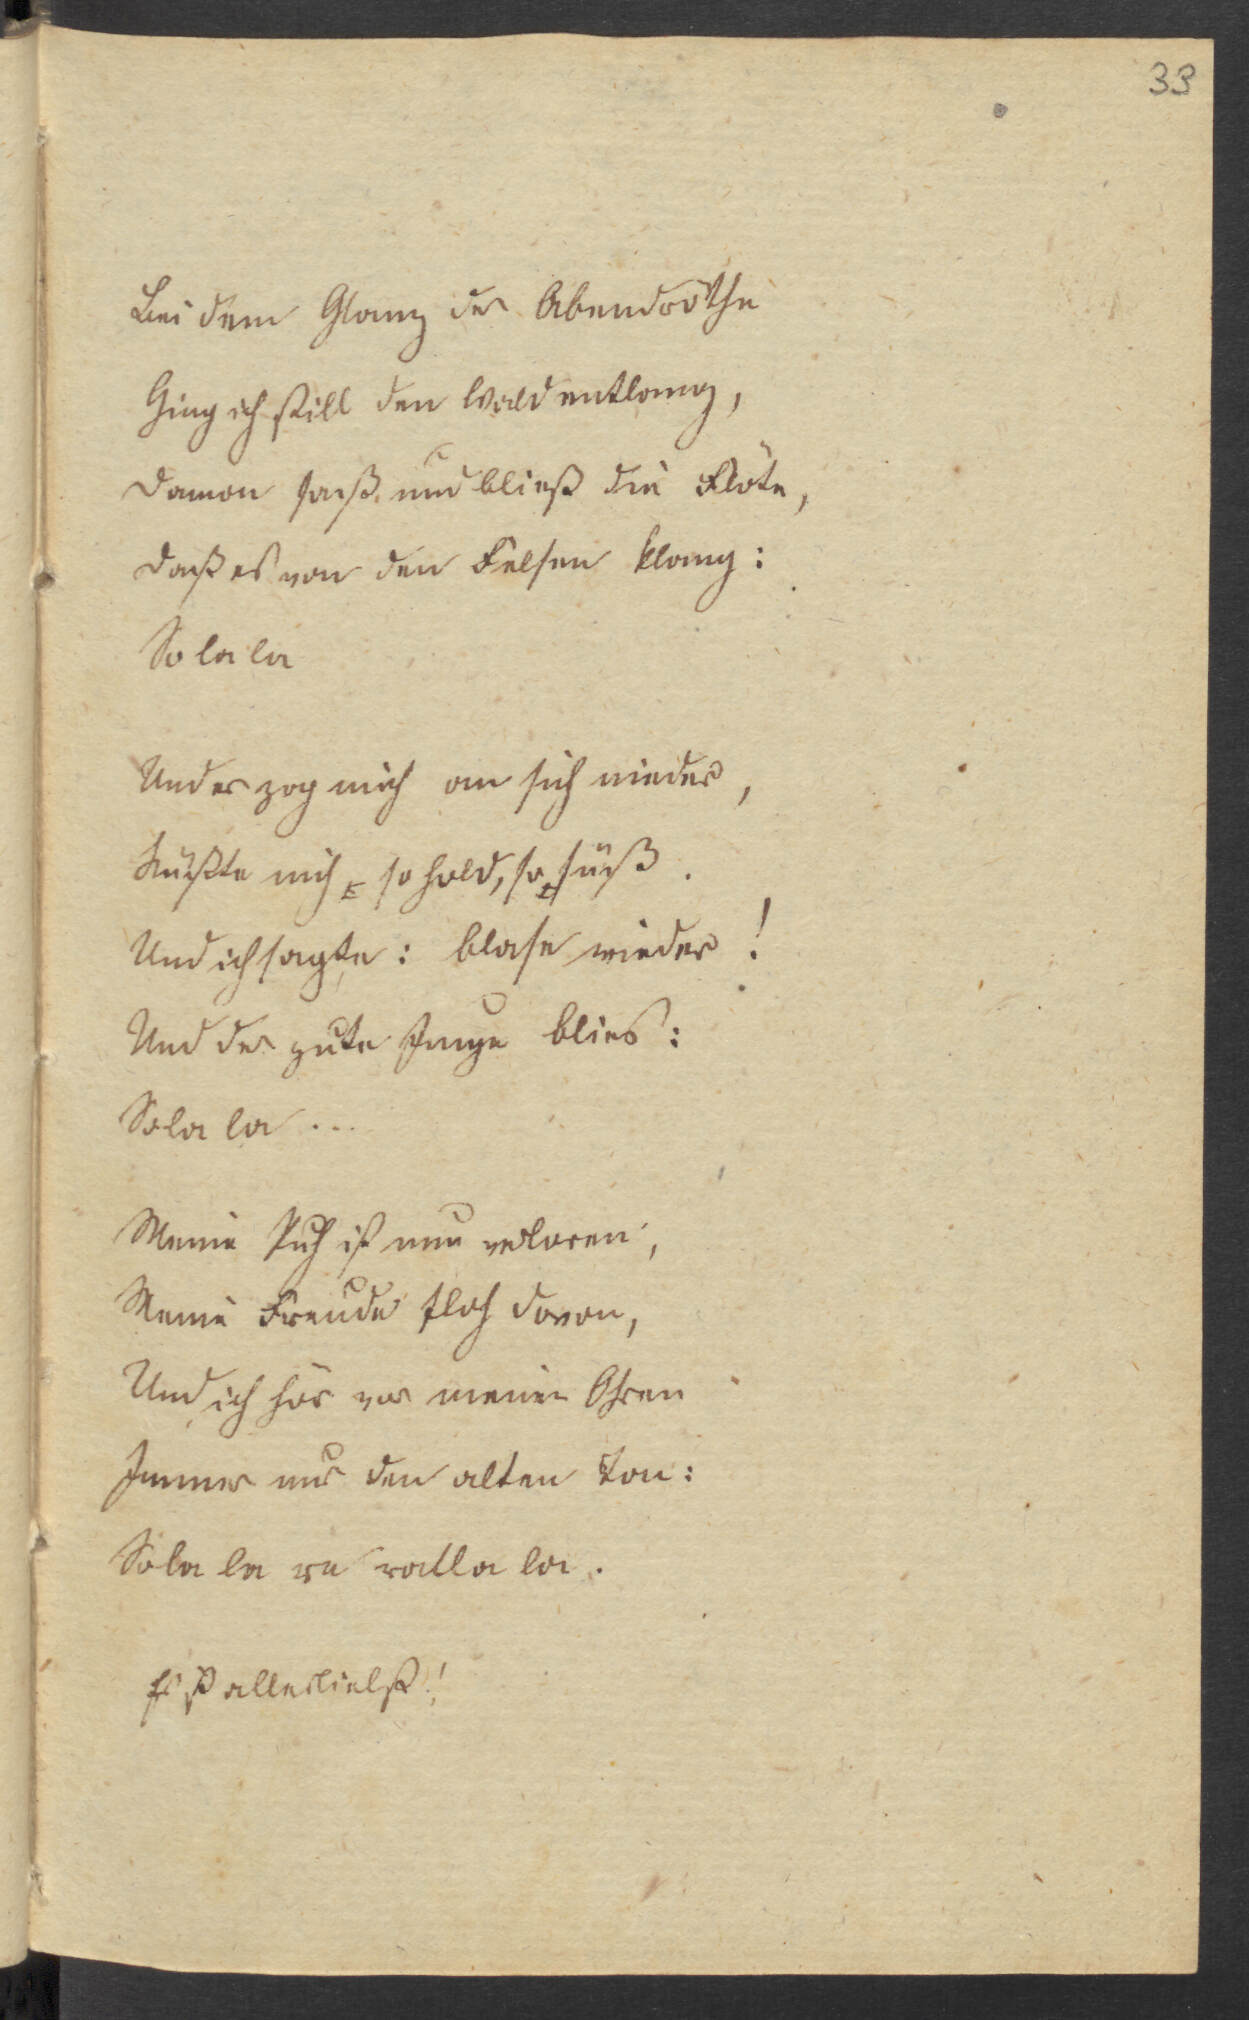 33
Bei dem Glanz der Abendröthe
Ging ich still den Wald entlang,
Damon saß und bließ die Flöte,
Daß es von den Felsen klang:
So la la
Und er zog mich an sich nieder,
Küßte mich so hold, so süß.
Und ich sagte: blase wieder!
Und der gute Junge blies:
So la la ...
Meine Ruh ist nun verloren,
Meine Freude floh davon,
Und ich hör vor meinen Ohren
Immer nur den alten Ton:
So la la re ralla la.
Es ist allerliebst!